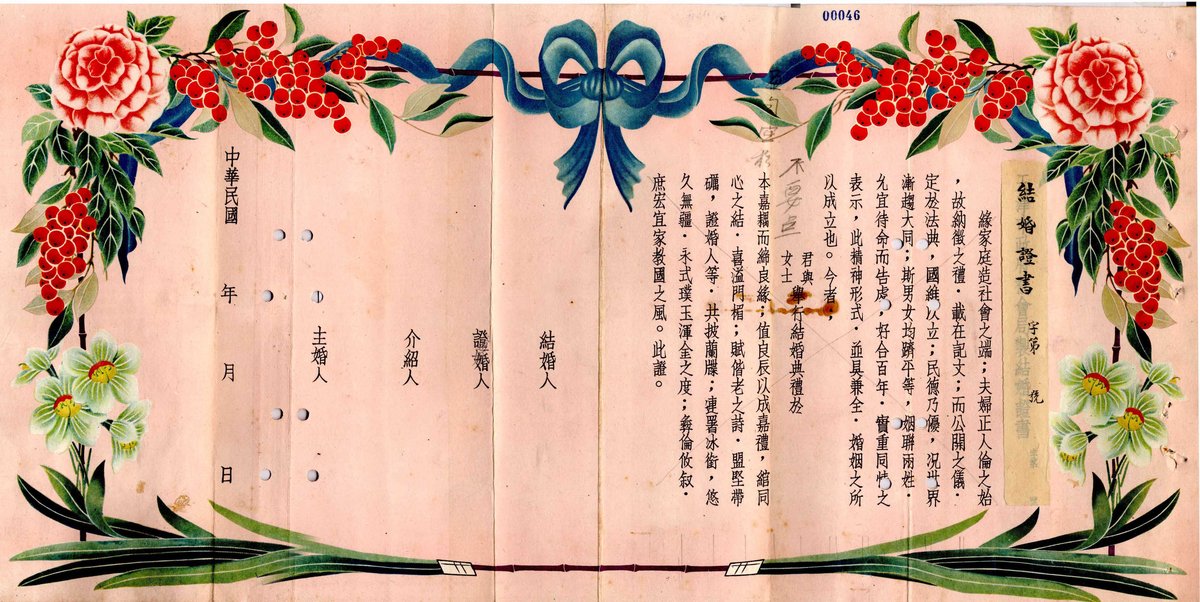 00046
結婚證書
字第　號
緣家庭造社會之端；夫婦正人倫之始
，故納徵之禮．載在記文；而公開之儀．
定於法典，國維以立；民德乃優，況世界
漸趨大同；斯男女均躋平等，姻聯兩姓．
允宜待命而告虔，好合百年．實重同情之
表示，此精神形式．並具兼全．婚姻之所
以成立也。今者，
君與
女士
舉行結婚典禮於
不要點
本嘉耦而締良緣；值良辰以成嘉禮，綰同
心之結．喜溢門楣；賦偕老之詩．盟堅帶
礪，證婚人等．共披蘭牒；連署冰銜，悠
久無疆．永式璞玉渾金之度；彝倫攸叙．
庶宏宜家教國之風。此證。
結婚人
證婚人
介紹人
主婚人
中華民國　年　月　日